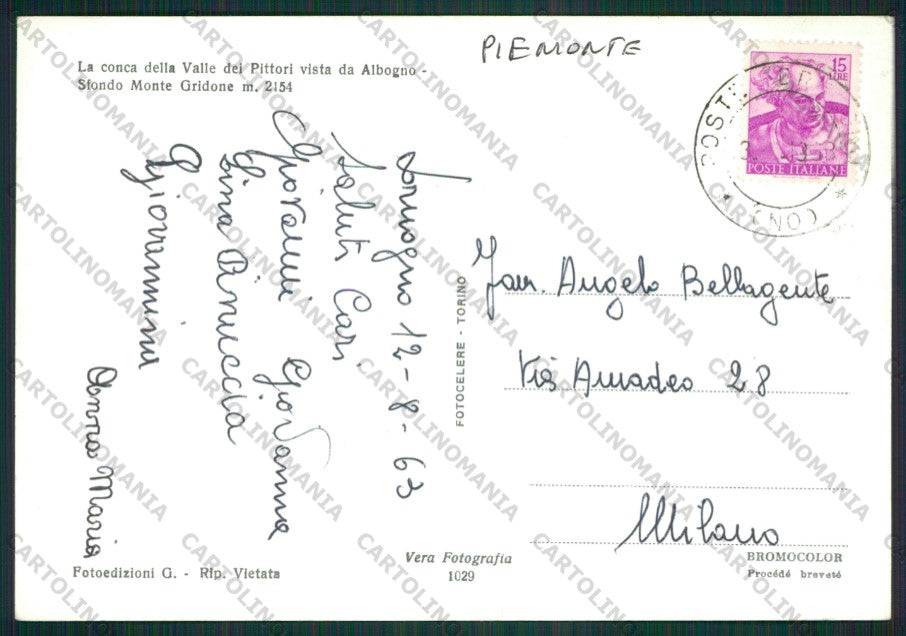 La conca della Valle dei Pittori vista da Albogno -
Sfondo Monte Gridone m. 2154
PIEMONTE
15
LIRE
POSTE ITALIANE
POSTE
CONZ
12-8-63
Saluti Cari
Giovanni Giovanna
Lina Pinuccia
Giovannini
Anna Maria
Fam. Angelo Bellagente
Via Amadeo 28
Milano
FOTOCELERE - TORINO
Fotoedizioni G. - Rip. Vietata
Vera Fotografia
1029
BROMOCOLOR
Procédé breveté
CARTOLINOMANIA